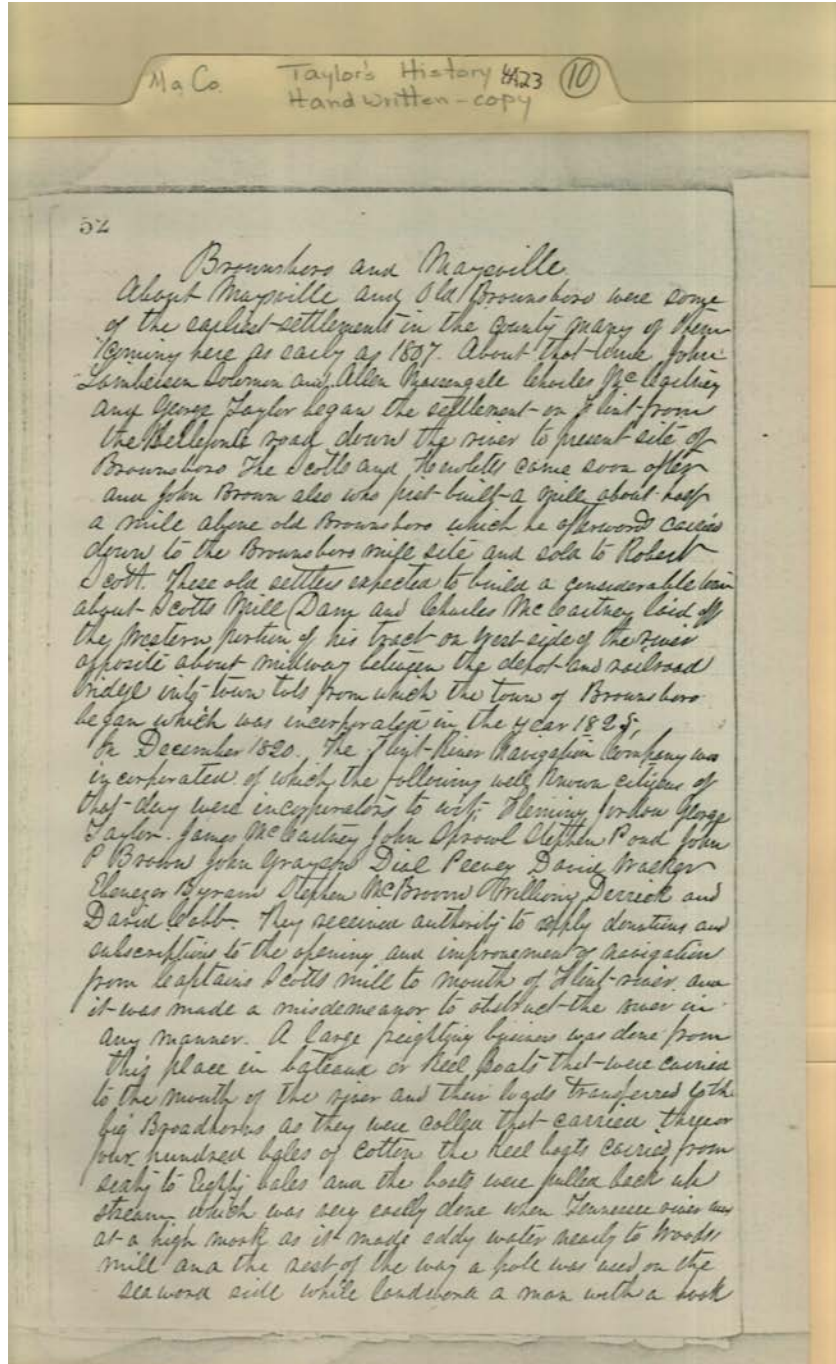 Ma Co. Taylor's History 4A23 10
Handwritten - copy
52
Brownsboro and Maysville
About Maysville and Old Brownsboro were some
of the earliest settlements in the county many of them
coming here as early as 1807. About that time John
Lamberson Solomon and Allen Massengale Charles McCartney
and George Taylor began the settlement on Flint from
the Bellefonte road down the river to present site of
Brownsboro The Scotts and Hewletts came soon after
and John Brown also who first built a mill about half
a mile above old Brownsboro which he afterwords carried
down to the Brownsboro mill site and sold to Robert
Scott. These old settlers expected to build a considerable town
about Scotts Mill (Dam and Charles McCartney laid off
the Western portion of his tract on West side of the river
opposite about midway between the depot and railroad
bridge into town lots from which the town of Brownsboro
began which was incorporated in the year 1825,
In December 1820. The Flint River Navigation Company was
incorporated of which the following well known citizens of
that day were incorporators to wit; Fleming Jordon George
Taylor. James McCartney John Sprowl Stephen Pond John
P Brown John Grayson Dial Peevey David Walker
Ebenezer Byram Stephen McBroom William Derrick and
David Cobb. They received authority to apply donations and
subscriptions to the opening and improvement of navigation
from Captains Scotts mill to mouth of Flint river and
it was made a misdemeanor to obstruct the river in
any manner. A large freighting business was done from
this place in bateaux or Keel Boats that were carried
to the mouth of the river and their loads transferred to the
big Broadhorns as they were called that carried three or
four hundred bales of cotton the Keel boats carried from
sixty to Eighty bales and the boats were pulled back up
stream which was very easily done when Tennessee river was
at a high mark as it made eddy water nearly to Woods
mill and the rest of the way a pole was used on the
seaword side while landword a man with a hook